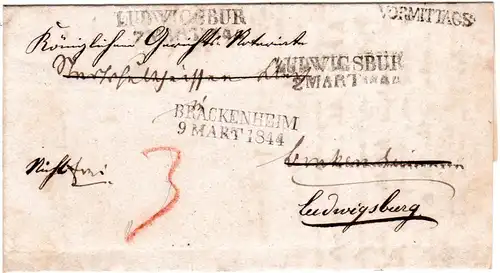 LUDWIGSBUR
7 MART 1844
VORMITTAGS
Königlichen Gerichts Notariate
LUDWIGSBUR
2 MART 1844
BRACKENHEIM
9 MART 1844
Nicht frei
3
Ludwigsburg